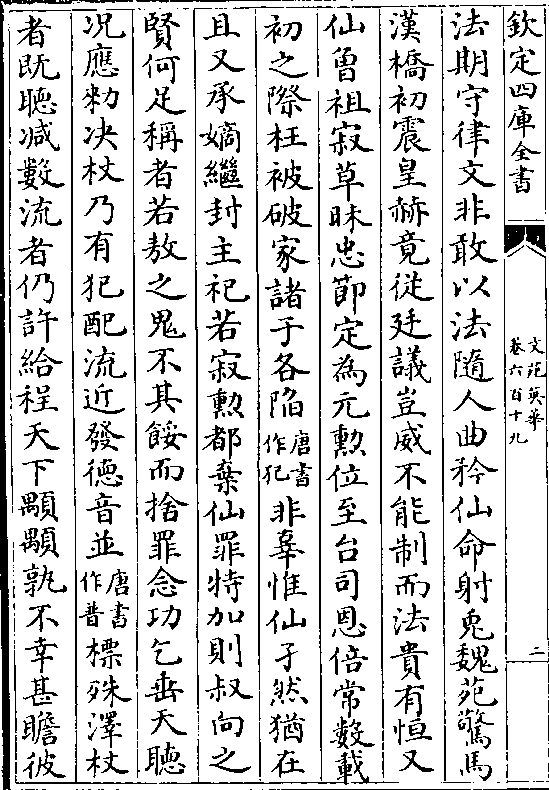 欽定四庫全書
文苑英華
卷六百十九
二
法期守律文非敢以法隨人曲矜仙命射兎魏苑驚馬
漢橋初震皇赫竟從廷議豈威不能制而法貴有恒又
仙曾祖寂草昧忠節定為元勲位至台司恩倍常數載
初之際枉被破家諸子各陷唐書作犯非辜惟仙孑然猶在
且又承嫡繼封主祀若寂勲都棄仙罪特加則叔向之
賢何足稱者若敖之鬼不其餒而捨罪念功乞垂天聽
况應勅决杖乃有犯配流近發德音並唐書作普標殊澤杖
者既聴減數流者仍許給程天下顒顒孰不幸甚瞻彼